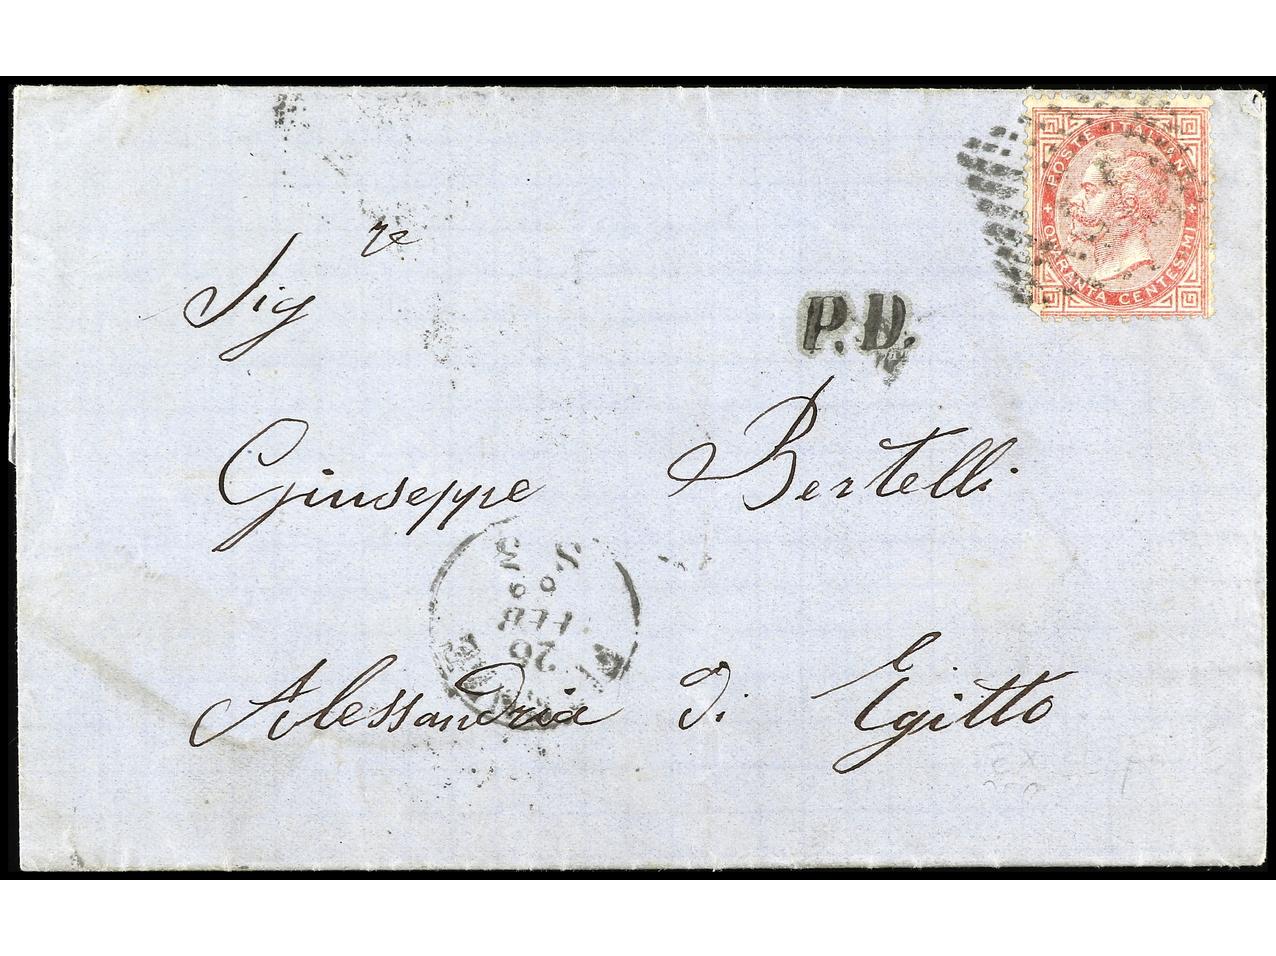 POSTE ITALIANE
QUARANTA CENTESIMI
P.D.
Sig.re
Giuseppe Bertelli
20
FEB
Alessandria di Egitto